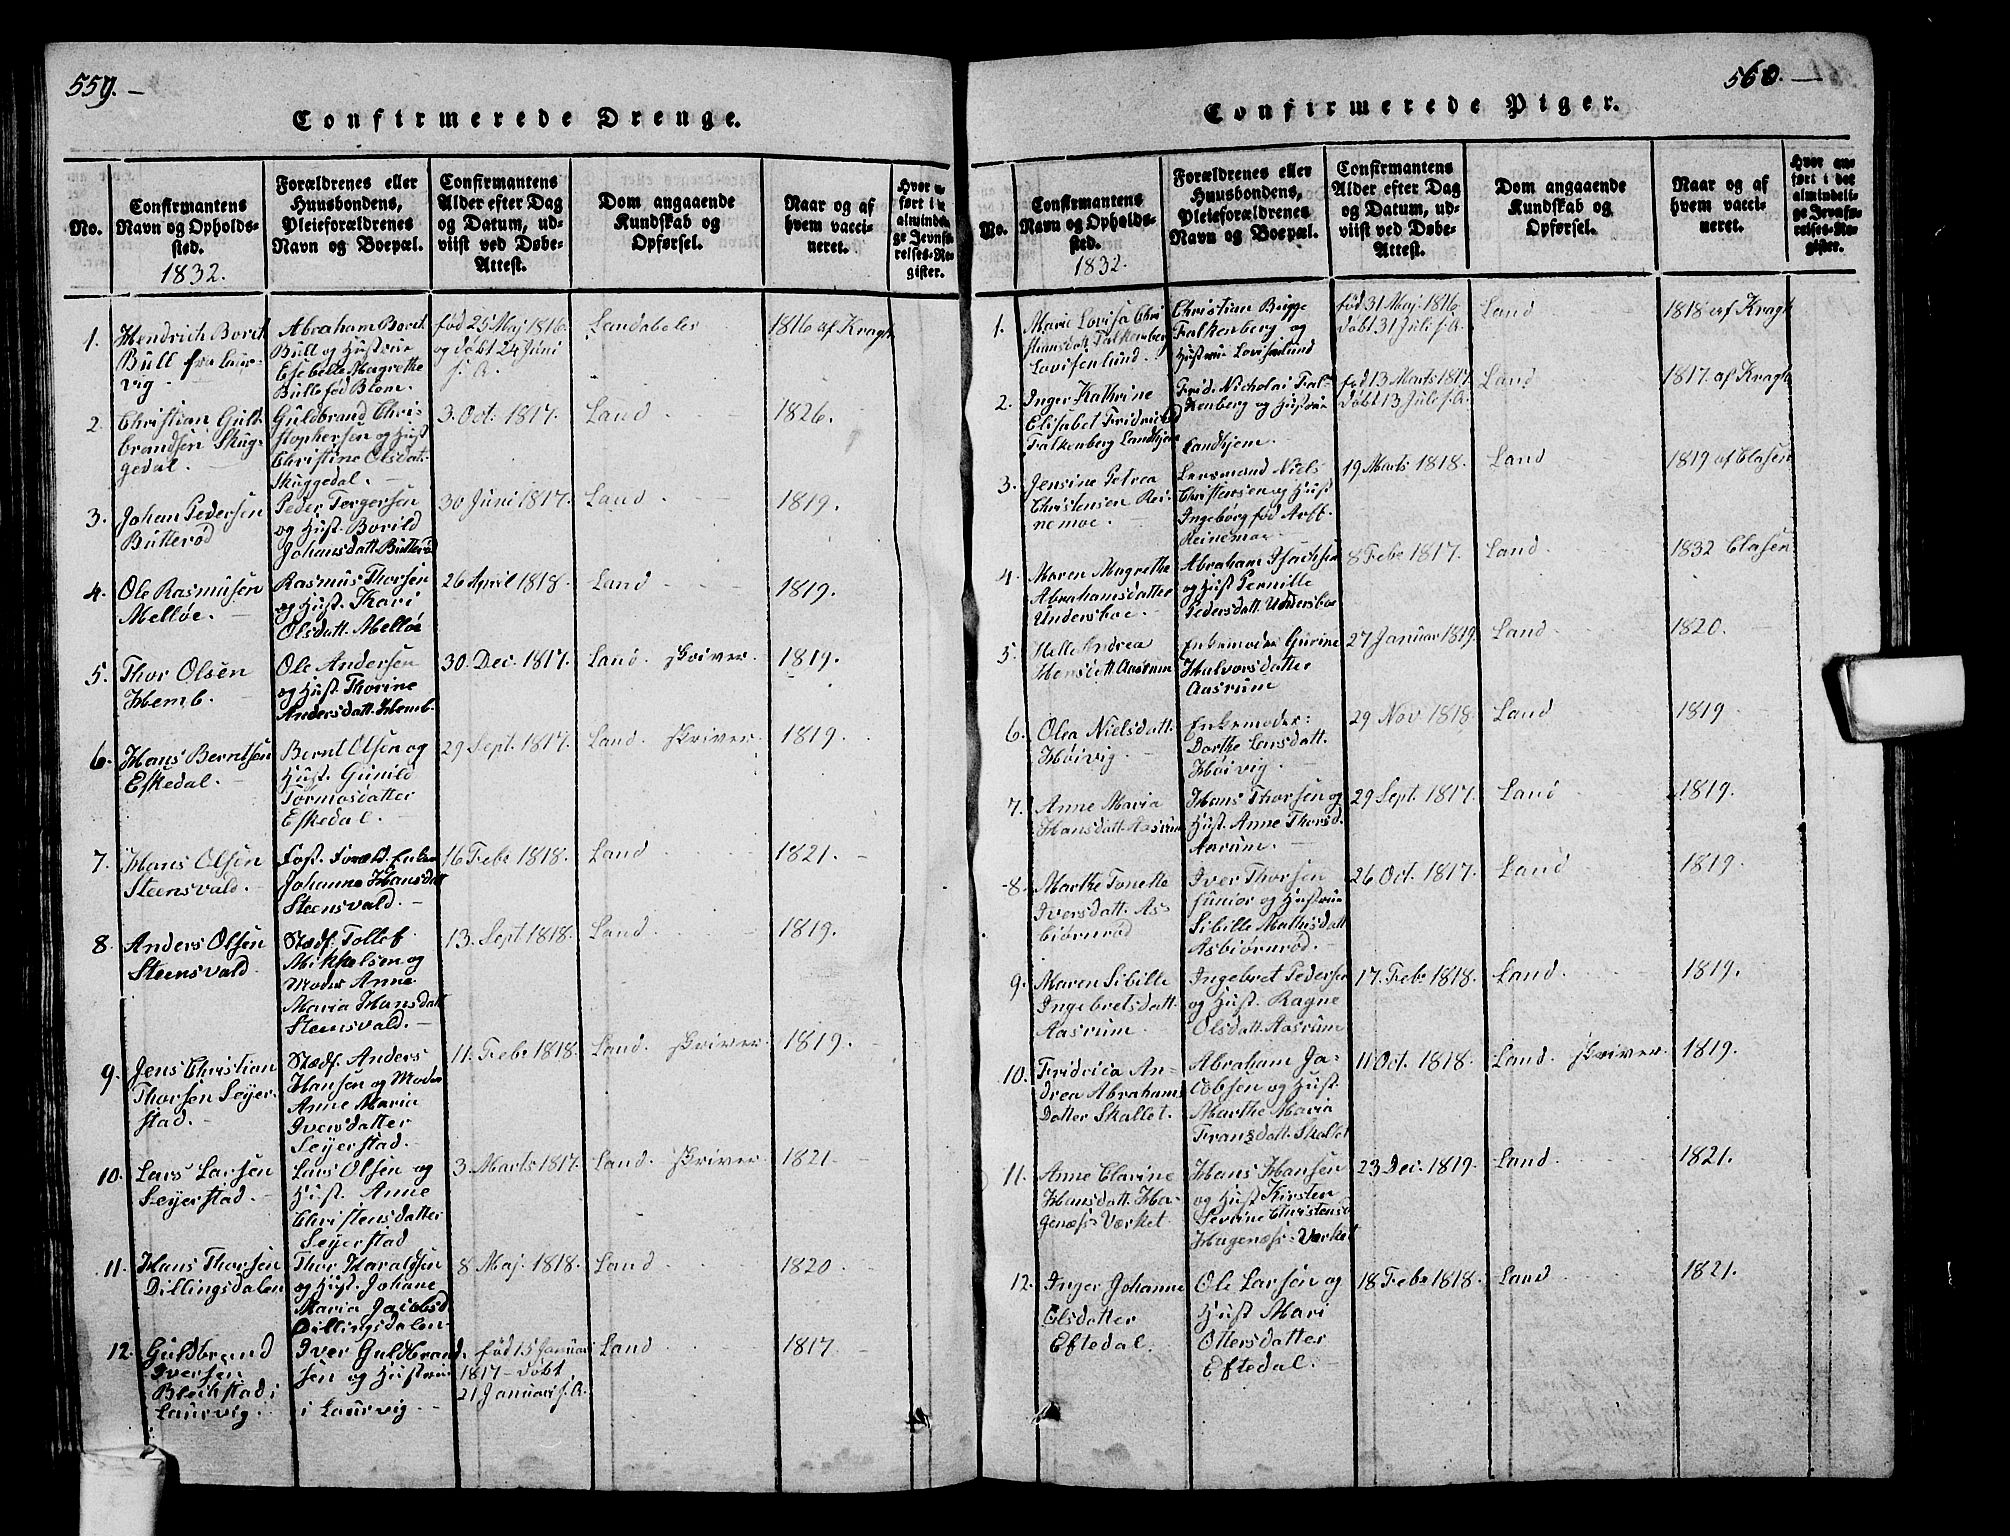 559. —
Confirmerede Drenge.
No.
Confirmantens
Navn og Opholds-
sted.
1832.
Forældrenes eller
Huusbondens,
Pleieforældrenes
Navn og Boepæl.
Confirmantens
Alder efter Dag
og Datum, ud-
viist ved Døbe-
Attest.
Dom angaaende
Kundskab og
Opførsel.
Naar og af
hvem vacci-
neret.
Hvor an-
ført i det
almindeli-
ge Jevnfø-
relses-Re-
gister.
1.
Hendrich Boret
Bull fra Laur-
vig —
Abraham Boret
Bull og Hustrue
Magrethe
Bull fød Blom.
fød 25 Maj 1816.
og døbt 24 Juni
s. A.
1816 af Kragh
2.
Christian Guld-
brandsen Skug-
gedal. —
Guldbrand Chris-
stophersen og Hust
Christine Olsdat.
Skuggedal. —
3. Oct. 1817.
Land.
1826.
3.
Johan Pedersen
Butterød
Peder Torgersen
og Hust. Borild
Johansdatt. Butterød
30 Juni 1817.
Land.
1819.
4.
Ole Rasmusen
Melløe. —
Rasmus Thorsen
og Hust. Kari
Olsdatt. Melløe
26 April 1818.
Land
1819.
5.
Thor Olsen
Hemb. —
Ole Andersen
og Hust. Thorine
Andersdatt. Hemb.
30. Dec. 1817.
Land. skriver.
1819.
6.
Hans Berntsen
Eskedal. —
Bernt Olsen og
Hust. Gunild
Tormosdatter
Eskedal. —
29 Sept. 1817.
Land. skriver.
1819.
7.
Hans Olsen
Steensvald. —
Fost. Foræld.
Johanne Hansdatt
Steensvald. —
16 Febr 1818.
Land
1821. —
8.
Anders Olsen
Steensvald.
Stedf. Tollef
Mikkelsen og
Moder Anne
Maria Hansdatt
Steensvald. —
13. Sept. 1818.
Land.
1819.
9.
Jens Christian
Thorsen Seyer-
stad. —
Stedf. Anders
Hansen og Moder
Anne Maria
Iversdatter
Seyerstad.
11. Febr 1818.
Land. skriver.
1819. —
10.
Lars Larsen
Seyerstad. —
Lars Olsen og
Hust. Anne
Christensdatter
Seyerstad
3. Marts 1817.
Land. skriver.
1821. —
11.
Hans Thorsen
Dillingsdalen
Thor Haraldsen
og Hust. Johane
Maria Jacobsd.
Dillingsdalen.
8 Maj. 1818.
Land
1820
12.
Guldbrand
Iversen
i
Laurvig.
Iver Guldbrand-
sen og Hustrue
i Laurvig. —
fød 15 Januar
1817 — døbt
21 Januari s. A.
Land
1817.
560. —
Confirmerede Piger.
No.
Confirmantens
Navn og Opholds-
sted.
1832.
Forældrenes eller
Huusbondens,
Pleieforældrenes
Navn og Boepæl.
Confirmantens
Alder efter Dag
og Datum, ud-
viist ved Døbe-
Attest.
Dom angaaende
Kundskab og
Opførsel.
Naar og af
hvem vacci-
neret.
Hvor an-
ført i det
almindeli-
ge Jevnfø-
relses-Re-
gister.
1.
Marie Lovisa Chri
stiansdatt. Falkenberg
Lovisenlund. —
Christian Brigge
Falkenberg og
Hustrue Lovisenlund
fød 31 Maj. 1816
døbt 31 Juli s. A.
Land
1818 af Kragh
2.
Inger Kathrine
Elisabet Fridricka
Falkenberg Landhjem
Frid. Nicholai Fal-
kenberg og Hustrue
Landhjem.
fød 13 Marts 1817.
døbt 13 Juli s. A.
Land
1817. af Kragh
3.
Jensine Petrea
Christensen Rei-
nemoe. —
Lensmand Niels
Christensen og Hust
Ingeborg fød
Reinemoe —
19 Marts 1818.
Land
1819 af Clasen
4.
Maren Magrethe
Abrahamsdatter
Undersboe. —
Abraham Isachsen
og Hust. Pernille
Pedersdatt. Undersboe
8 Febr 1817.
Land
1832 Clasen
5.
Helle Andrea
Hansdatt. Aasrum
Enkemoder Gurine
Halvorsdatter
Aasrum
27 Januar 1819.
Land
1820.
6.
Olea Nielsdatt.
Høivig. —
Enkemoder:
Dorthe Lensdatt.
Høivig. —
29 Nov. 1818.
Land
1819
7.
Anne Maria
Hansdatt. Aasrum
Hans Thorsen og
Hust. Anne Thorsd.
Aasrum. —
29 Sept. 1817.
Land
1819.
8.
Marthe Tonette
Iversdatt. As-
biørnrød
Iver Thorsen
Junior og Hustrue
Sibille Mathisdatt
Asbiørnrød. —
26 Oct. 1817.
Land
1819.
9.
Maren Sibille
Ingebretsdatt.
Aasrum —
Ingebret Pedersen
og Hust. Ragne
Olsdatt. Aasrum
17. Febr 1818.
Land.
1819.
10.
Fridrica An-
drea Abrahams
Datter Skallet.
Abraham Ja-
cobsen og Hust.
Marthe Maria
Fransdatt. Skallet
11 Oct. 1818.
Land. skriver.
1819.
11.
Anne Clarine
Hansdatt. Ha-
genæs-Værket.
Hans Hansen
og Hust Kirsten
Severine Christensd
Hagenæs-Værket
23 Dec. 1819.
Land
1821.
12.
Inger Johanne
Olsdatter
Eftedal. —
Ole Larsen og
Hust Mari
Ottersdatter
Eftedal. —
18 Febr 1818.
Land
1821.